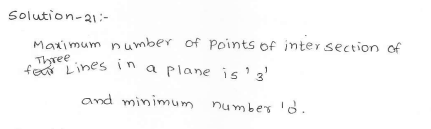 Solution-21:-
Maximum number of points of intersection of
Three
four Lines in a plane is '3'
and minimum number 'o'.